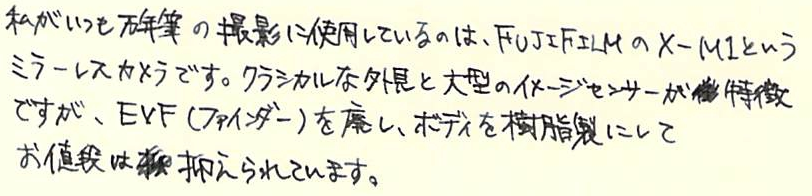 私がいつも万年筆の撮影に使用しているのは、FUJIFILMのX-M1という
ミラーレスカメラです。クラシカルな外見と大型のイメージセンサーが特徴
ですが、EVF(ファインダー)を廃し、ボディを樹脂製にして
お値段は抑えられています。